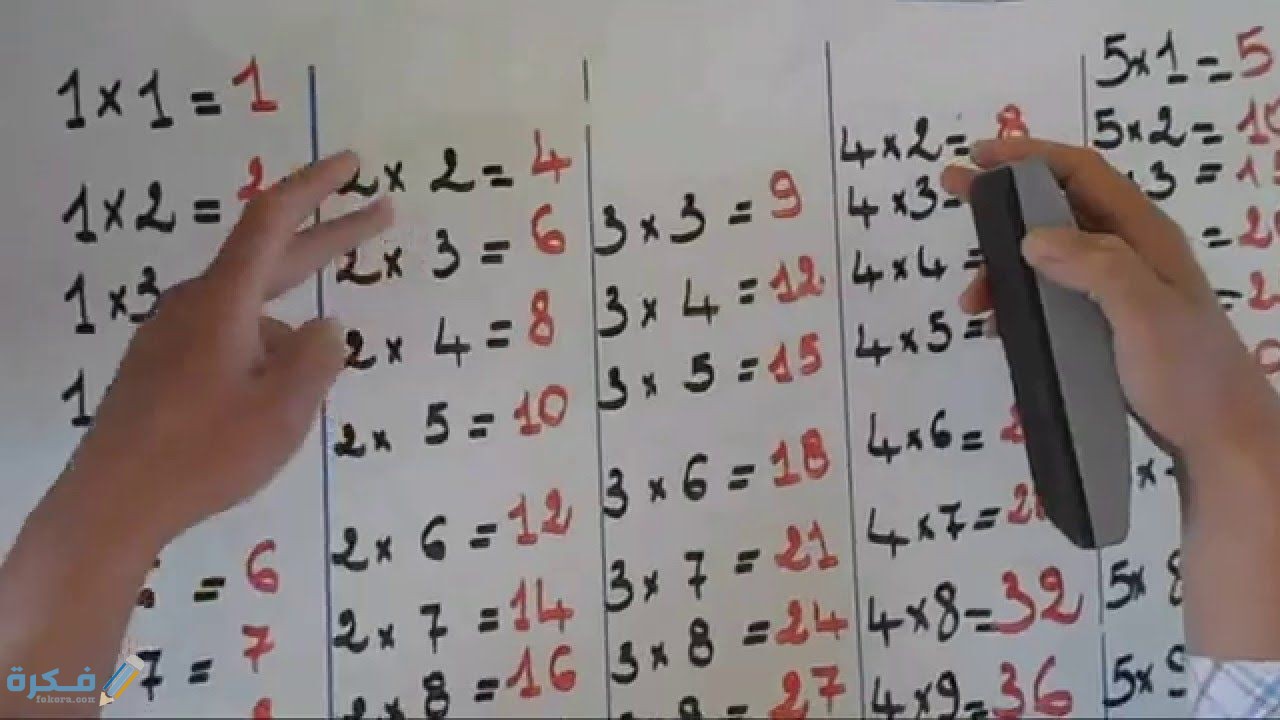 1×1=1
1×2=2
1×3
1
=6
7=7
2×2=4
2×3=6
2×4=8
2×5=10
2×6=12
2×7=14
2×8=16
3×3=9
3×4=12
3×5=15
3×6=18
3×7=21
3×8=24
=27
4×2=8
4×3=
4×4=
4×5=
4×6=2
4×7=2
4×8=32
4×9=36
5×1=5
5×2=10
×3=15
=20
=2
5×8
5×9
فكرة
fokera.com